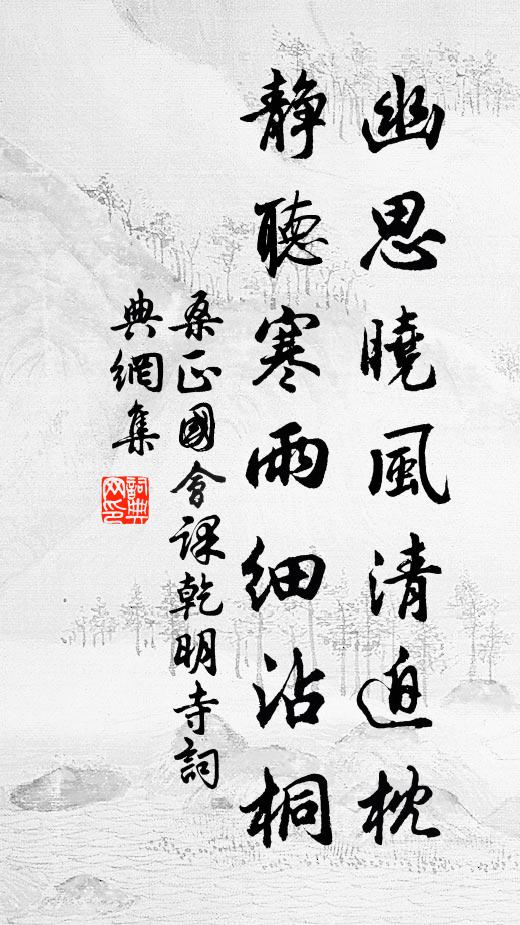 幽思曉風清迫枕
靜聽寒雨細沾桐
桑正國會課乾明寺詞
典網集
詞典網印